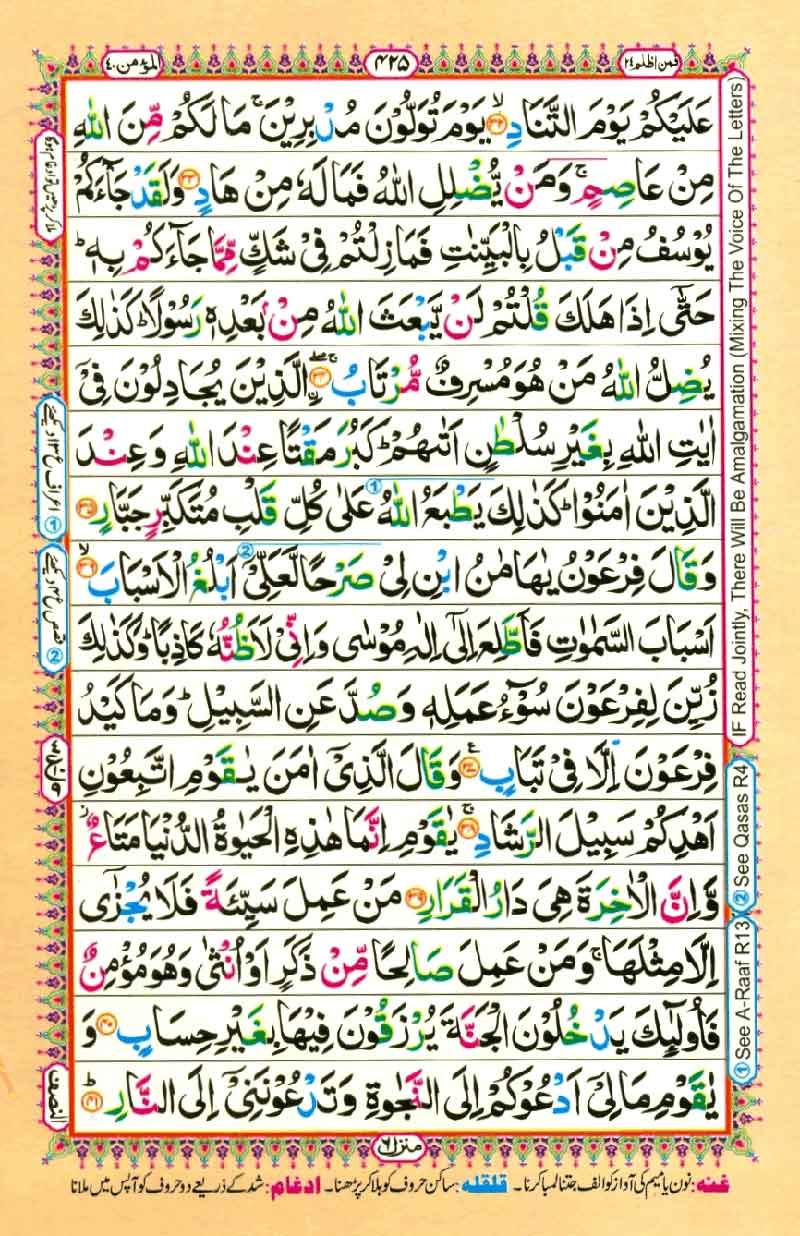 فمن اظلم ٢٤
٤٢٥
المؤمن ٤٠
عَلَيْكُمْ يَوْمَ التَّنَادِ ۙ‏﴿۳۲﴾ يَوْمَ تُوَلُّوْنَ مُدْبِرِيْنَ ۚ مَا لَكُمْ مِّنَ اللّٰهِ
مِنْ عَاصِمٍ ۚ وَمَنْ يُّضْلِلِ اللّٰهُ فَمَا لَهٗ مِنْ هَادٍ ﴿۳۳﴾ وَلَقَدْ جَآءَكُمْ
يُوْسُفُ مِنْ قَبْلُ بِالْبَيِّنٰتِ فَمَا زِلْتُمْ فِيْ شَكٍّ مِّمَّا جَآءَكُمْ بِهٖ ؕ
حَتّٰٓى اِذَا هَلَكَ قُلْتُمْ لَنْ يَّبْعَثَ اللّٰهُ مِنْۢ بَعْدِهٖ رَسُوْلًا ؕ كَذٰلِكَ
يُضِلُّ اللّٰهُ مَنْ هُوَ مُسْرِفٌ مُّرْتَابُ ۚۖ ﴿۳۴﴾ اۨلَّذِيْنَ يُجَادِلُوْنَ فِيْٓ
اٰيٰتِ اللّٰهِ بِغَيْرِ سُلْطٰنٍ اَتٰىهُمْ ؕ كَبُرَ مَقْتًا عِنْدَ اللّٰهِ وَعِنْدَ
الَّذِيْنَ اٰمَنُوْا ؕ كَذٰلِكَ يَطْبَعُ اللّٰهُ ① عَلٰى كُلِّ قَلْبِ مُتَكَبِّرٍ جَبَّارٍ ﴿۳۵﴾
وَقَالَ فِرْعَوْنُ يٰهَامٰنُ ابْنِ لِيْ صَرْحًا ② لَّعَلِّيْٓ اَبْلُغُ الْاَسْبَابَ ۙ ﴿۳۶﴾
اَسْبَابَ السَّمٰوٰتِ فَاَطَّلِعَ اِلٰٓى اِلٰهِ مُوْسٰى وَاِنِّيْ لَاَظُنُّهٗ كَاذِبًا ؕ وَكَذٰلِكَ
زُيِّنَ لِفِرْعَوْنَ سُوْٓءُ عَمَلِهٖ وَصُدَّ عَنِ السَّبِيْلِ ؕ وَمَا كَيْدُ
فِرْعَوْنَ اِلَّا فِيْ تَبَابٍ ﴿۳۷﴾ وَقَالَ الَّذِيْٓ اٰمَنَ يٰقَوْمِ اتَّبِعُوْنِ
اَهْدِكُمْ سَبِيْلَ الرَّشَادِ ۚ ﴿۳۸﴾ يٰقَوْمِ اِنَّمَا هٰذِهِ الْحَيٰوةُ الدُّنْيَا مَتَاعٌ ؗ
وَّاِنَّ الْاٰخِرَةَ هِيَ دَارُ الْقَرَارِ ﴿۳۹﴾ مَنْ عَمِلَ سَيِّئَةً فَلَا يُجْزٰٓى
اِلَّا مِثْلَهَا ۚ وَمَنْ عَمِلَ صَالِحًا مِّنْ ذَكَرٍ اَوْ اُنْثٰى وَهُوَ مُؤْمِنٌ
فَاُولٰٓئِكَ يَدْخُلُوْنَ الْجَنَّةَ يُرْزَقُوْنَ فِيْهَا بِغَيْرِ حِسَابٍ ﴿۴۰﴾ وَ
يٰقَوْمِ مَا لِيْٓ اَدْعُوْكُمْ اِلَى النَّجٰوةِ وَتَدْعُوْنَنِيْٓ اِلَى النَّارِ ؕ ﴿۴۱﴾
منزل ٦
غنه: نون یا میم کی آواز کو الف جتنا لمبا کرنا۔ قلقله: ساکن حروف کو ہلا کر پڑھنا۔ ادغام: شد کے ذریعے دو حروف کو آپس میں ملانا
IF Read Jointly, There Will Be Amalgamation (Mixing The Voice Of The Letters)
① See A-Raaf R13 ② See Qasas R4
① اعراف ع ١٣ دیکھئے
② قصص ع ۴ دیکھئے
النصف